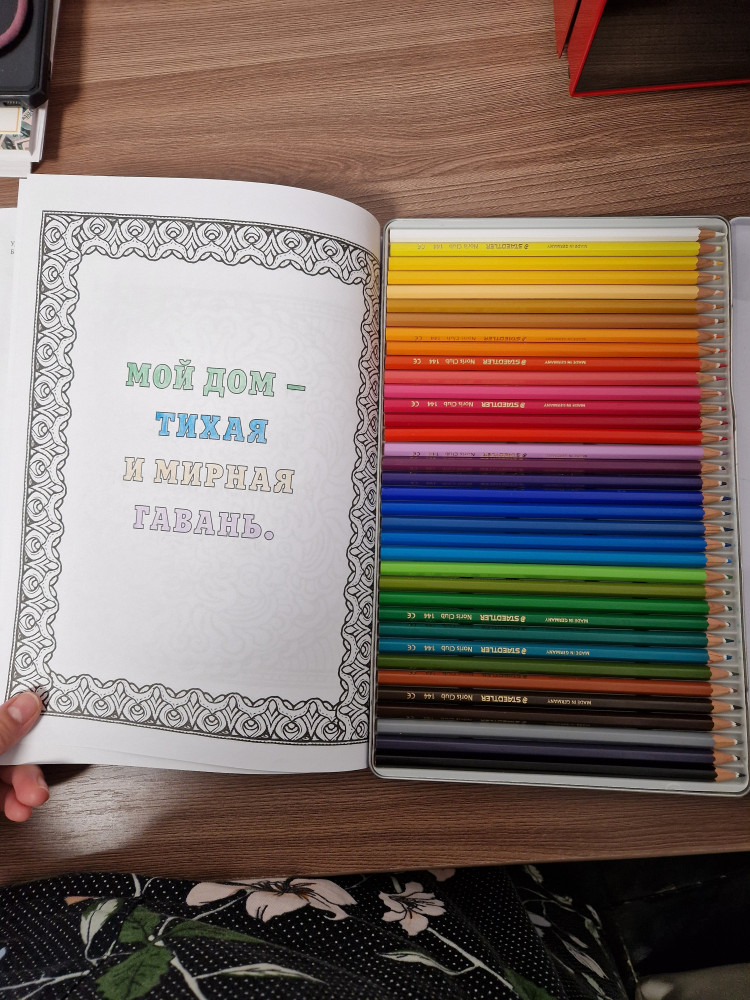 МОЙ ДОМ –
ТИХАЯ
И МИРНАЯ
ГАВАНЬ.
STAEDTLER Noris Club 144 CE
MADE IN GERMANY
MADE IN GERMANY STAEDTLER Noris Club 144 CE
MADE IN GERMANY STAEDTLER Noris Club 144 CE
MADE IN GERMANY STAEDTLER Noris Club 144 CE
MADE IN GERMANY STAEDTLER Noris Club 144 CE
MADE IN GERMANY STAEDTLER Noris Club 144 CE